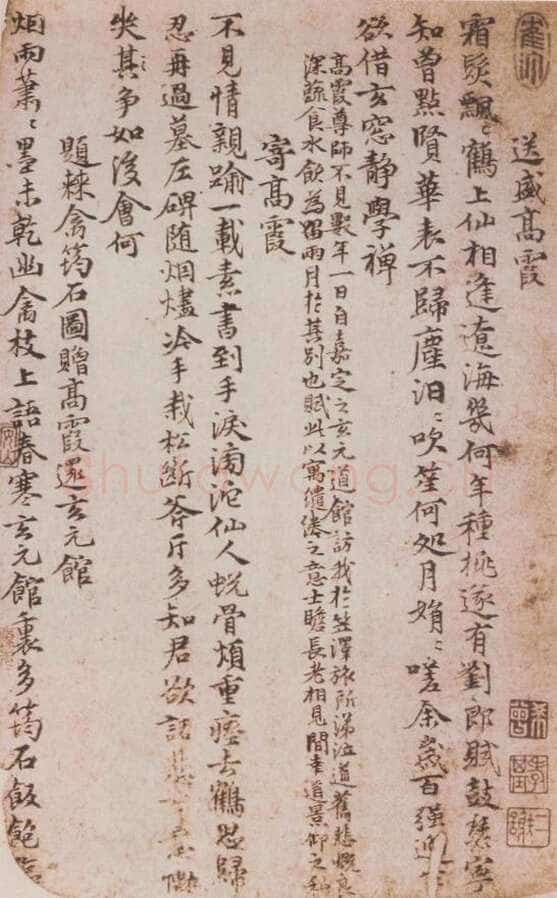 送盛高霞
霜髮飄〻鶴上仙相逢遼海幾何年種桃逐有劉郎賦鼓瑟寧
知曾點賢華表不歸塵汩〻吹笙何處月娟〻嗟余歲百強
欲借玄窓靜學禪
高霞尊師不見數年一日自嘉定之玄元道館訪我於笠澤旅所涕泣道舊悲慨良
深蔬食水飲為留兩月於其別也賦此以寓繾綣之意士瞻長老相見間幸道景仰之私
寄高霞
不見情親踰一載素書到手淚滂沱仙人蛻骨煩重瘞玄鶴思歸
忍再過墓左碑隨烟燼冷手栽松斷斧斤多知君欲話
其爭如後會何
題棘禽筠石圖贈高霞還玄元館
烟雨蕭〻墨未乾幽禽枝上語春寒玄元館裏多筠石飯飽